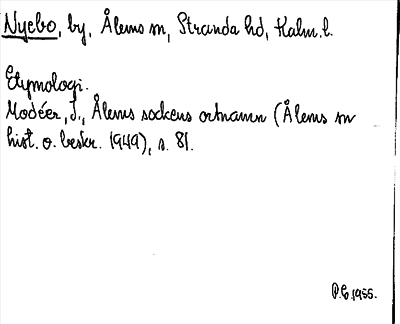 Nyebo, by, Ålems sn, Stranda hd, Kalm. l.
Etymologi.
Modéer, I., Ålems sockens ortnamn (Ålems sn
hist. o. beskr. 1949), s. 81.
P.E. 1955.